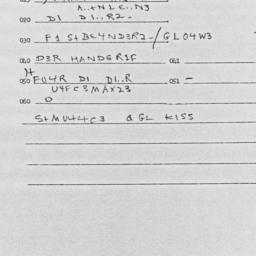 020 D1 D1..R2-
030 F1 S+BE4ND3R2-/GLO4W3
040 D3R HANDGR1F 041
050 FU4R D1 D1..R 051 -
U4FC3MAX23
060 O
S+MU44C3 & GL K1SS